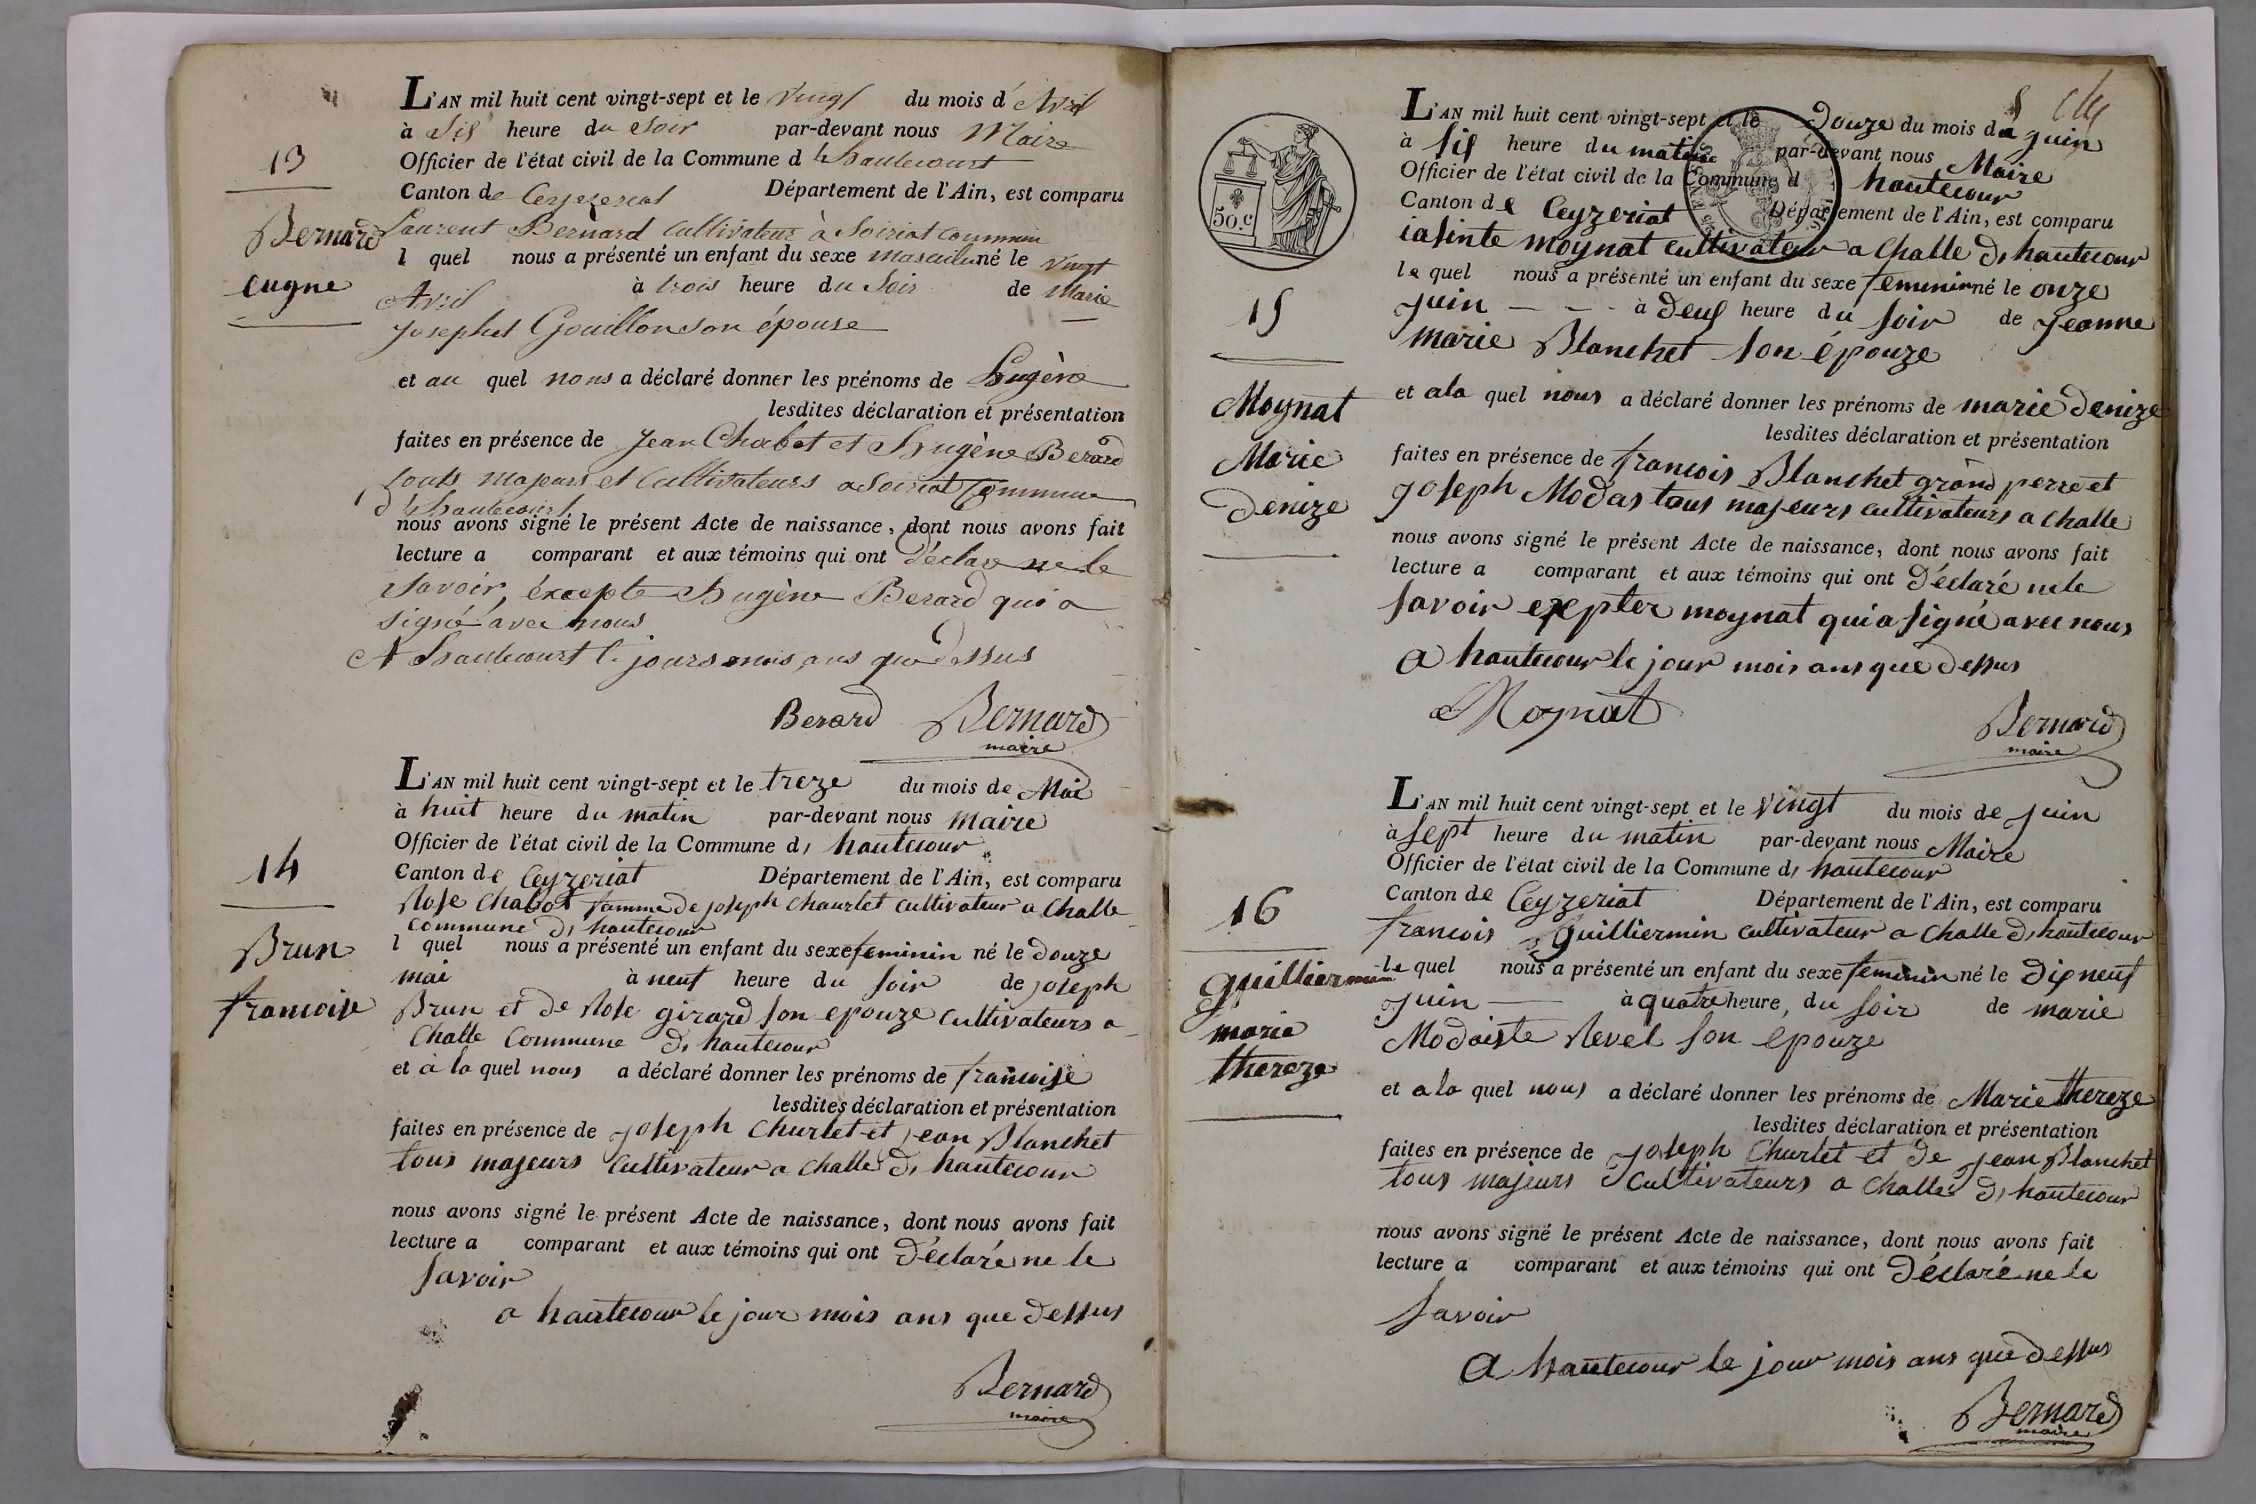 13
Bernard
eugne
L'AN mil huit cent vingt-sept et le vingt du mois d'Avril
à Six heure du soir par-devant nous Maire
Officier de l'état civil de la Commune d hautecourt
Canton de Ceyzeriat Département de l'Ain, est comparu
Laurent Bernard Cultivateur à Soiriat commun
l quel nous a présenté un enfant du sexe masculin né le vingt
Avril à trois heure du Soir de Marie
Josephet Gouillon son épouse
et au quel nous a déclaré donner les prénoms de Eugène
lesdites déclaration et présentation
faites en présence de Jean Chabot et Eugène Berard
touts majeurs et Cultivateurs a Soiriat Commune
d'hautecourt
nous avons signé le présent Acte de naissance, dont nous avons fait
lecture a comparant et aux témoins qui ont déclare ne le
savoir, éxcepte Eugène Berard qui a
signé avec nous
A hautecourt l. jours mois ans que dessus
Berard Bernard
maire
14
Brun
francoise
L'AN mil huit cent vingt-sept et le treze du mois de Mai
à huit heure du matin par-devant nous maire
Officier de l'état civil de la Commune d, hautecour
Canton de Ceyzeriat Département de l'Ain, est comparu
Rose Chabot famme de joseph Chaurlet cultivateur a Challe
Commune d, hautecour
l quel nous a présenté un enfant du sexe feminin né le douze
mai à neuf heure du soir de joseph
Brun et de Rose girard son epouze cultivateurs a
Challe Commune d, hautecour
et à la quel nous a déclaré donner les prénoms de francoise
lesdites déclaration et présentation
faites en présence de joseph Churlet et jean Blanchet
tous majeurs Cultivateur a Challe d, hautecour
nous avons signé le présent Acte de naissance, dont nous avons fait
lecture a comparant et aux témoins qui ont déclaré ne le
savoir
a hautecour le jour mois ans que dessus
Bernard
maire
50.c
15
Moynat
Marie
Denize
L'AN mil huit cent vingt-sept et le Douze du mois de juin
à six heure du matin par-devant nous Maire
Officier de l'état civil de la Commune d hautecour
Canton de Ceyzeriat Département de l'Ain, est comparu
iasinte moynat cultivateur a Challe d, hautecour
le quel nous a présenté un enfant du sexe feminin né le onze
juin à deux heure du soir de jeanne
marie Blanchet son épouze
et a la quel nous a déclaré donner les prénoms de marie denize
lesdites déclaration et présentation
faites en présence de francois Blanchet grand perre et
joseph Modas tous majeurs cultivateurs a Challe
nous avons signé le présent Acte de naissance, dont nous avons fait
lecture a comparant et aux témoins qui ont déclaré ne le
savoir expter moynat qui a signé avec nous
a hautecour le jour mois ans que dessus
Moynat Bernard
maire
16
guilliermin
marie
thereze
L'AN mil huit cent vingt-sept et le vingt du mois de juin
à sept heure du matin par-devant nous Maire
Officier de l'état civil de la Commune d, hautecour
Canton de Ceyzeriat Département de l'Ain, est comparu
francois guilliermin cultivateur a Challe d, hautecour
le quel nous a présenté un enfant du sexe feminin né le dix neuf
juin à quatre heure, du soir de marie
Modaiste Revel son epouze
et a la quel nous a déclaré donner les prénoms de Marie thereze
lesdites déclaration et présentation
faites en présence de joseph Churlet et de jean Blanchet
tous majeurs Cultivateurs a Challe d, hautecour
nous avons signé le présent Acte de naissance, dont nous avons fait
lecture a comparant et aux témoins qui ont déclaré ne le
savoir
a hautecour le jour mois ans que dessus
Bernard
maire